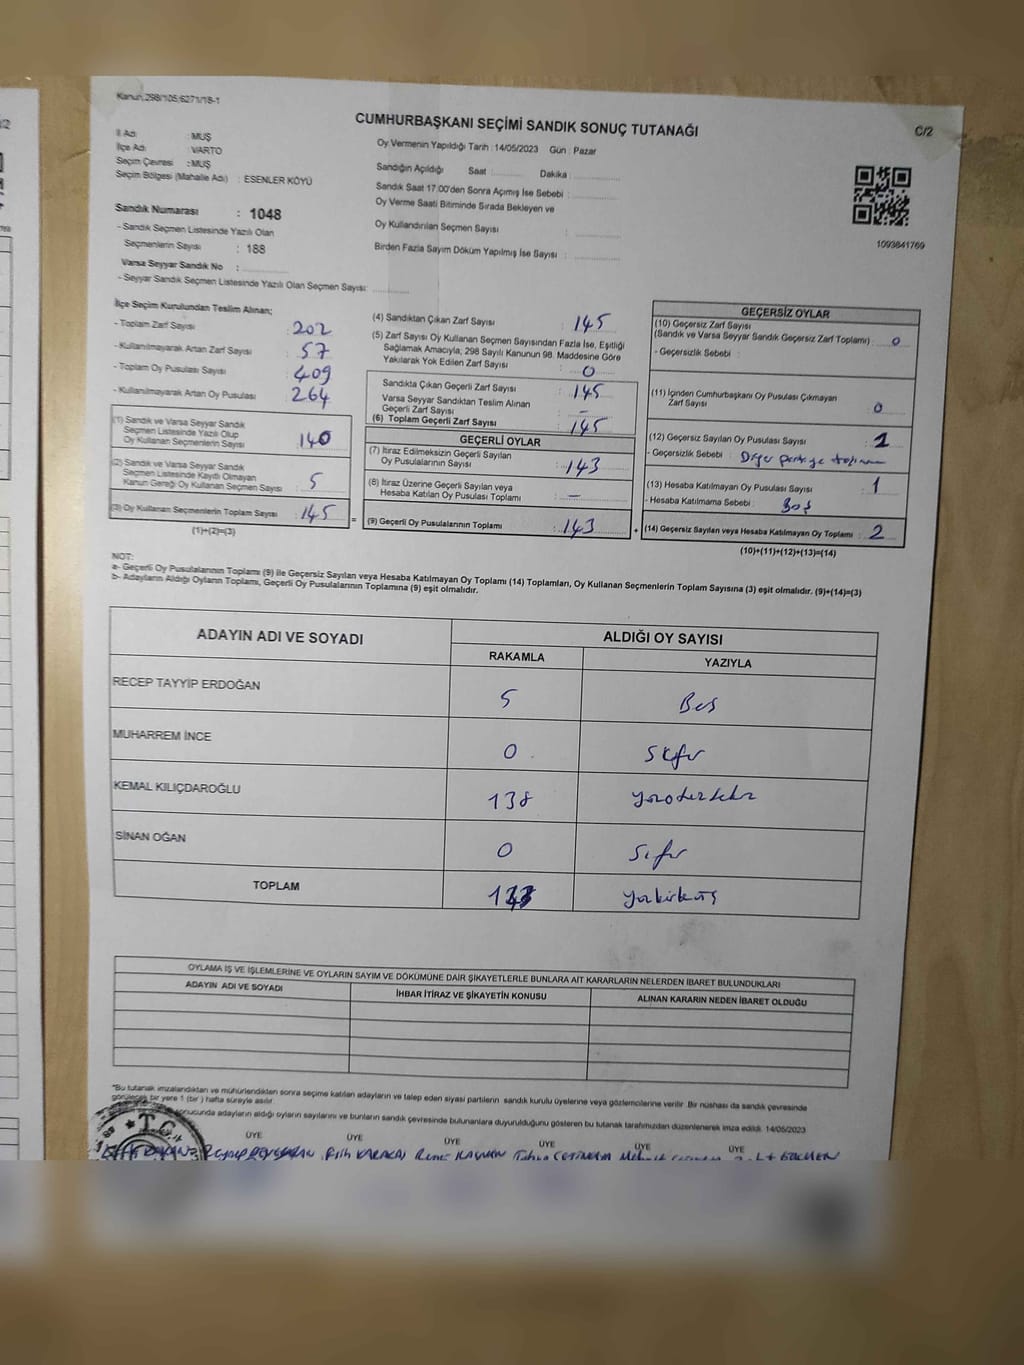 Kanun;298/105;6271/18-1
CUMHURBAŞKANI SEÇİMİ SANDIK SONUÇ TUTANAĞI
C/2
İl Adı : MUŞ
İlçe Adı : VARTO
Seçim Çevresi : MUŞ
Seçim Bölgesi (Mahalle Adı) : ESENLER KÖYÜ
Sandık Numarası : 1048
- Sandık Seçmen Listesinde Yazılı Olan
Seçmenlerin Sayısı : 188
Varsa Seyyar Sandık No :
- Seyyar Sandık Seçmen Listesinde Yazılı Olan Seçmen Sayısı:
Oy Vermenin Yapıldığı Tarih : 14/05/2023 Gün : Pazar
Sandığın Açıldığı Saat Dakika :
Sandık Saat 17.00'den Sonra Açımış İse Sebebi :
Oy Verme Saati Bitiminde Sırada Bekleyen ve
Oy Kullandırılan Seçmen Sayısı :
Birden Fazla Sayım Döküm Yapılmış İse Sayısı :
1093841769
İlçe Seçim Kurulundan Teslim Alınan;
- Toplam Zarf Sayısı : 202
- Kullanılmayarak Artan Zarf Sayısı : 57
- Toplam Oy Pusulası Sayısı : 409
- Kullanılmayarak Artan Oy Pusulası : 264
(1) Sandık ve Varsa Seyyar Sandık
Seçmen Listesinde Yazılı Olup
Oy Kullanan Seçmenlerin Sayısı : 140
(2) Sandık ve Varsa Seyyar Sandık
Seçmen Listesinde Kayıtlı Olmayan
Kanun Gereği Oy Kullanan Seçmen Sayısı : 5
(3) Oy Kullanan Seçmenlerin Toplam Sayısı : 145
(1)+(2)=(3)
(4) Sandıktan Çıkan Zarf Sayısı : 145
(5) Zarf Sayısı Oy Kullanan Seçmen Sayısından Fazla İse, Eşitliği
Sağlamak Amacıyla; 298 Sayılı Kanunun 98. Maddesine Göre
Yakılarak Yok Edilen Zarf Sayısı : 0
Sandıkta Çıkan Geçerli Zarf Sayısı : 145
Varsa Seyyar Sandıktan Teslim Alınan
Geçerli Zarf Sayısı : -
(6) Toplam Geçerli Zarf Sayısı : 145
GEÇERLİ OYLAR
(7) İtiraz Edilmeksizin Geçerli Sayılan
Oy Pusulalarının Sayısı : 143
(8) İtiraz Üzerine Geçerli Sayılan veya
Hesaba Katılan Oy Pusulası Toplamı : -
= (9) Geçerli Oy Pusulalarının Toplamı : 143 +
GEÇERSİZ OYLAR
(10) Geçersiz Zarf Sayısı
(Sandık ve Varsa Seyyar Sandık Geçersiz Zarf Toplamı) : 0
- Geçersizlik Sebebi :
(11) İçinden Cumhurbaşkanı Oy Pusulası Çıkmayan
Zarf Sayısı : 0
(12) Geçersiz Sayılan Oy Pusulası Sayısı : 1
- Geçersizlik Sebebi : Diğer
(13) Hesaba Katılmayan Oy Pusulası Sayısı : 1
- Hesaba Katılmama Sebebi : Boş
(14) Geçersiz Sayılan veya Hesaba Katılmayan Oy Toplamı : 2
(10)+(11)+(12)+(13)=(14)
NOT:
a- Geçerli Oy Pusulalarının Toplamı (9) ile Geçersiz Sayılan veya Hesaba Katılmayan Oy Toplamı (14) Toplamları, Oy Kullanan Seçmenlerin Toplam Sayısına (3) eşit olmalıdır. (9)+(14)=(3)
b- Adayların Aldığı Oyların Toplamı, Geçerli Oy Pusulalarının Toplamına (9) eşit olmalıdır.
ADAYIN ADI VE SOYADI ALDIĞI OY SAYISI
RAKAMLA YAZIYLA
RECEP TAYYİP ERDOĞAN 5 Beş
MUHARREM İNCE 0 Sıfır
KEMAL KILIÇDAROĞLU 138
SİNAN OĞAN 0 Sıfır
TOPLAM
OYLAMA İŞ VE İŞLEMLERİNE VE OYLARIN SAYIM VE DÖKÜMÜNE DAİR ŞİKAYETLERLE BUNLARA AİT KARARLARIN NELERDEN İBARET BULUNDUKLARI
ADAYIN ADI VE SOYADI İHBAR İTİRAZ VE ŞİKAYETİN KONUSU ALINAN KARARIN NEDEN İBARET OLDUĞU
"Bu tutanak imzalandıktan ve mühürlendikten sonra seçime katılan adayların ve talep eden siyasi partilerin sandık kurulu üyelerine veya gözlemcilerine verilir. Bir nüshası da sandık çevresinde
görülecek bir yere 1 (bir) hafta süreyle asılır.
sonucunda adayların aldığı oyların sayılarını ve bunların sandık çevresinde bulunanlara duyurulduğunu gösteren bu tutanak tarafımızdan düzenlenerek imza edildi. 14/05/2023
T.C.
ÜYE ÜYE ÜYE ÜYE ÜYE ÜYE